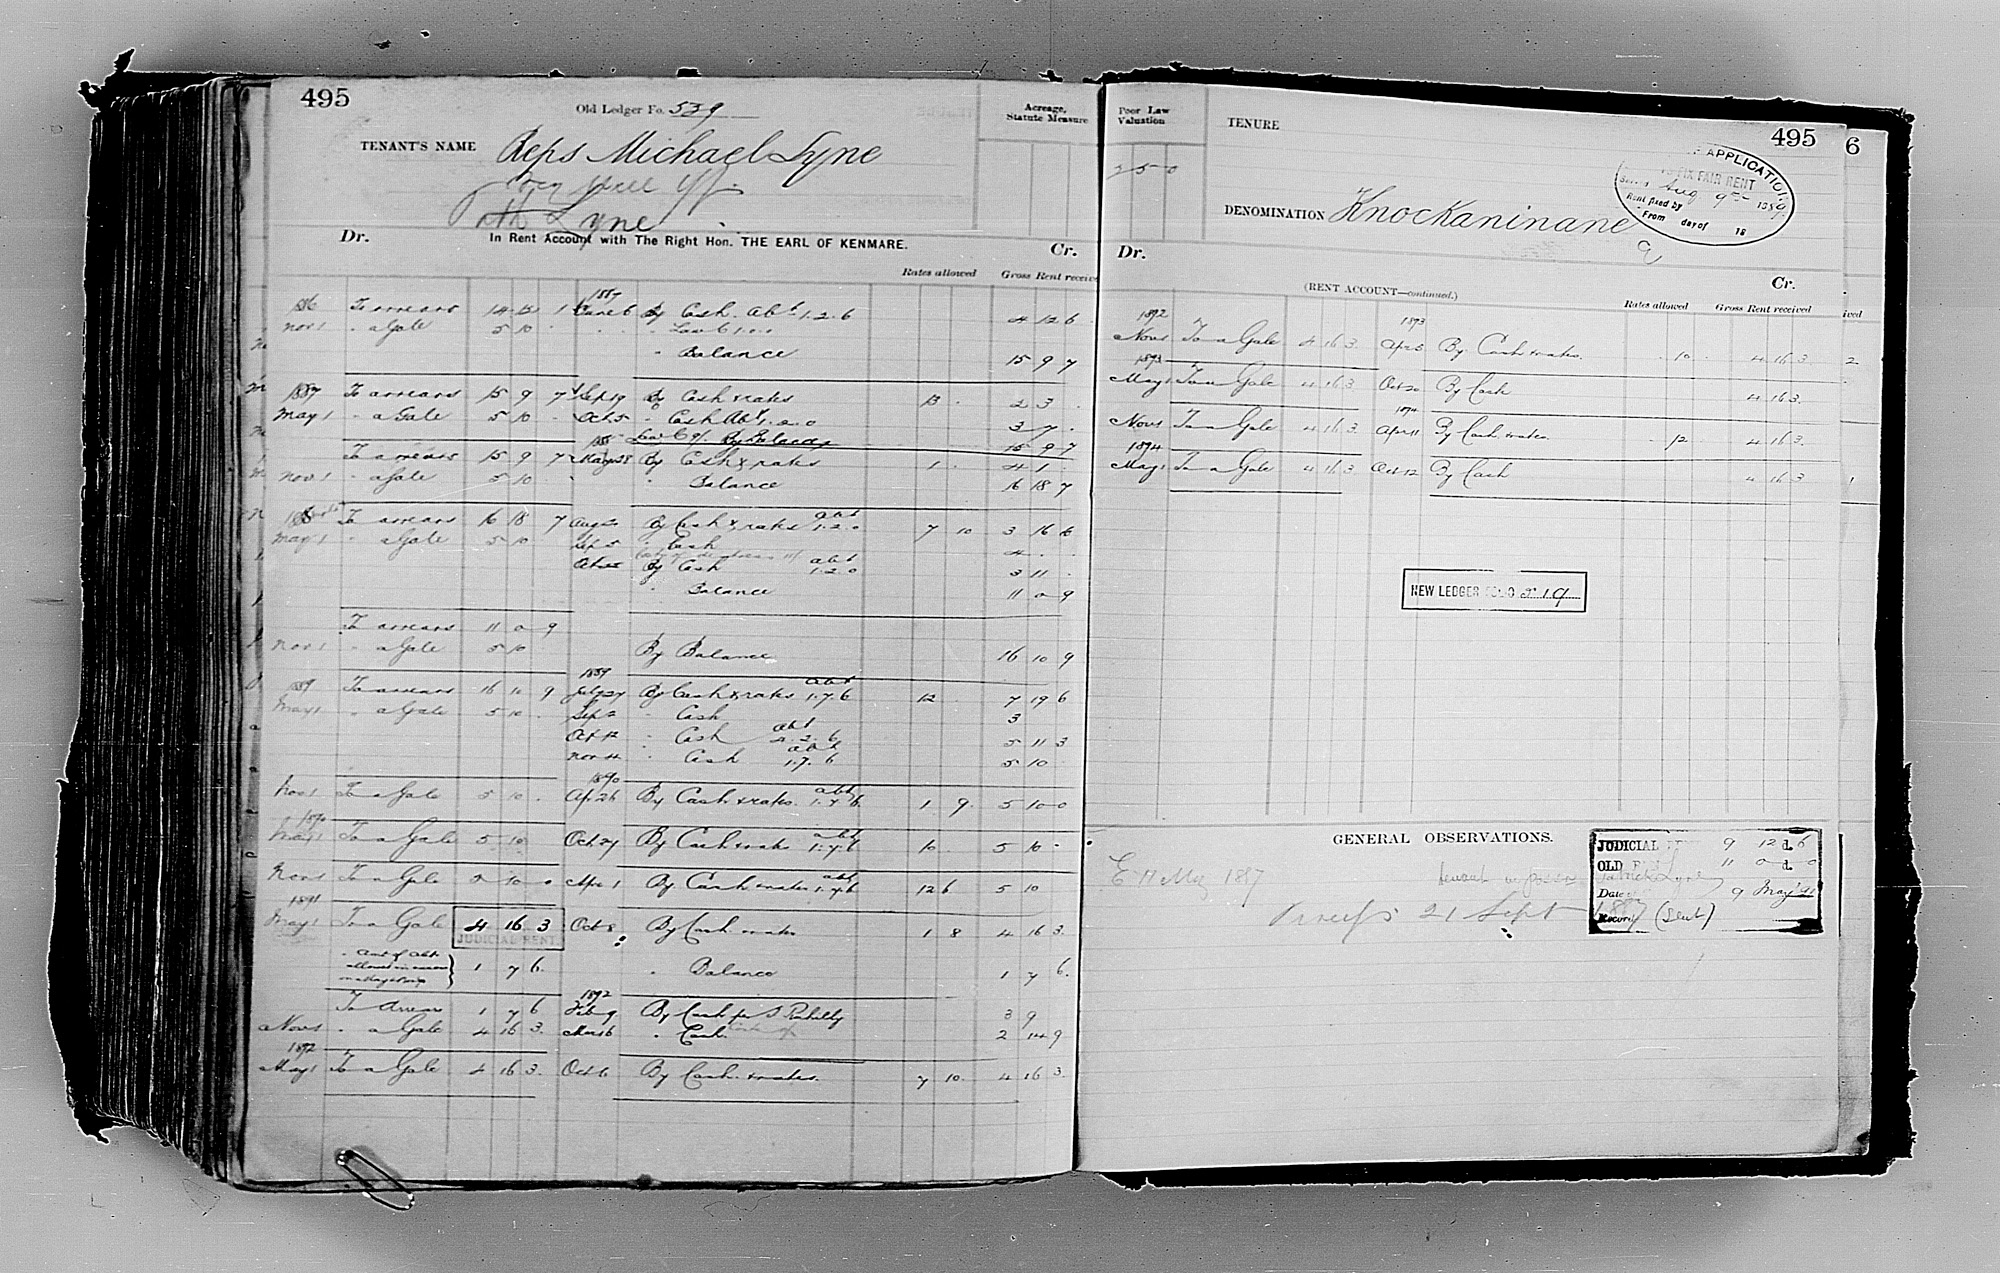 495
Old Ledger Fo. 539
Acreage, Statute Measure
TENANT'S NAME Reps Michael Lyne
Lyne
Dr. In Rent Account with The Right Hon. THE EARL OF KENMARE. Cr.
Rates allowed Gross Rent receive
1887
To arrears 14 12 1 June 6 By Cash. Abt 1.2.6 4 12 6
Nov 1 " a Gale 5 10 "
" Balance 15 9 7
1887 To arrears 15 9 7 Sep 19 By Cash & rates 13 . 2 3 .
May 1 " a Gale 5 10 . Oct 5 " Cash Abt 1.2.0 3 7 .
15 9 7
To arrears 15 9 7 May 28 By Cash & rates 1 . 4 1 .
Nov 1 " a Gale 5 10 . " Balance 16 18 7
To arrears 16 18 7 Aug 20 By Cash & rates abt 1.2.0 7 10 3 16 6
May 1 " a Gale 5 10 Sep 5 " Cash 4 . .
By Cash abt 1.2.0 3 11 .
" Balance 11 0 9
To arrears 11 0 9
Nov 1 " a Gale 5 10 By Balance 16 10 9
1889
1889 To arrears 16 10 9 July 27 By Cash & rates abt 1.7.6 12 7 19 6
May 1 " a Gale 5 10 . Sep 2 " Cash 3
Oct 12 " Cash abt 4.2.6 5 11 3
Nov 4 " Cash abt 1.7.6 5 10
1890
Nov 1 To a Gale 5 10 . Ap 26 By Cash & rates. abt 1.7.6 1 9 5 10 0
1890
May 1 To a Gale 5 10 Oct 27 By Cash & rates abt 1.7.6 10 5 10 -
Nov 1 To a Gale 5 10 0 Apr 1 By Cash & rates abt 1.7.6 12 6 5 10
1891
May 1 To a Gale 4 16 3 Oct 8 By Cash & rates 1 8 4 16 3
JUDICIAL RENT
1 7 6 " Balance 1 7 6
1892
To Arrears 1 7 6 Feb 9 By Cash per 3 9
Nov 1 " a Gale 4 16 3 Mar 16 " Cash 2 14 9
1892
May 1 To a Gale 4 16 3 Oct 6 By Cash & rates. 7 10 4 16 3
Poor Law Valuation
TENURE
495
6
APPLICATION
TO FIX FAIR RENT
Aug 9th 1889
Rent fixed by
From day of 18
DENOMINATION Knockaninane
Dr. Cr.
(RENT ACCOUNT—continued.)
Rates allowed Gross Rent received
ived
1892 1893
Nov 1 To a Gale 4 16 3 Apr 5 By Cash & rates. 10 . 4 16 3
1893
May 1 To a Gale 4 16 3 Oct 20 By Cash 4 16 3
1894
Nov 1 To a Gale 4 16 3 Apr 11 By Cash & rates 12 4 16 3
1894
May 1 To a Gale 4 16 3 Oct 12 By Cash 4 16 3
NEW LEDGER FOLIO 219
GENERAL OBSERVATIONS.
E 17 May 1887
21 Sept 1887
JUDICIAL 9 12 d. 6
OLD 11 0 d. 0
Date 9 May '91
Record (Sent)